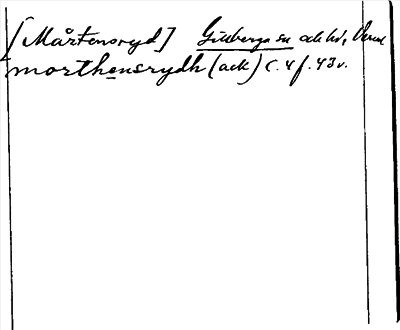 [Mårtensryd] Gillberga sn och hd, Värml
morthensrydh (ack) C. 4 f. 43 v.